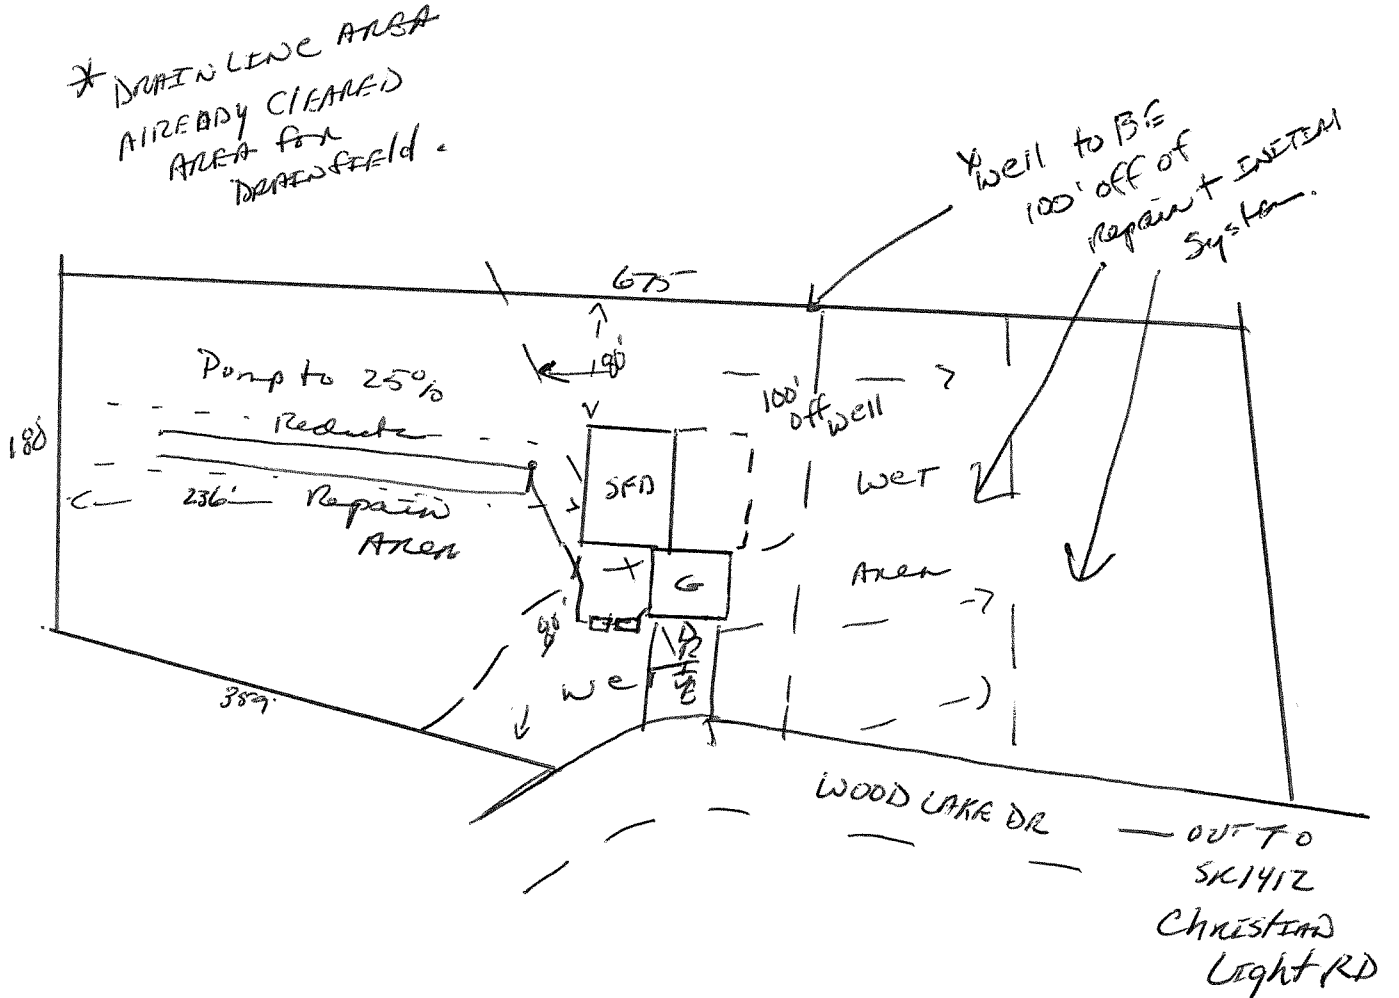 * DRAINLINE AREA
AlREADY ClEARED
AREA for
DRAINfIEld.
* well to BE
100' off of
Repair + INITIAl
System.
675
80'
Pump to 25%
Reducti
180'
236'
Repair
Area
SFD
G
100'
off well
WET
Area
80'
We
DRIVE
389.
WOOD LAKE DR — OUT TO
SR1412
ChRIStIAN
Light RD